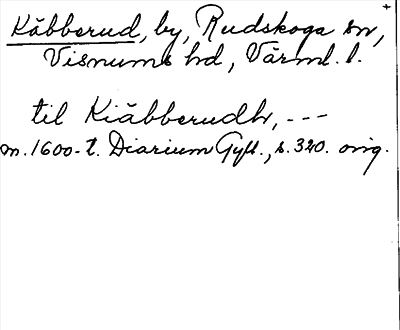 Käbberud, by, Rudskoga sn,
Visnums hd, Värml. l.
til Kiäbberudh, ---
m. 1600-t. Diarium Gyll., s. 320. orig.